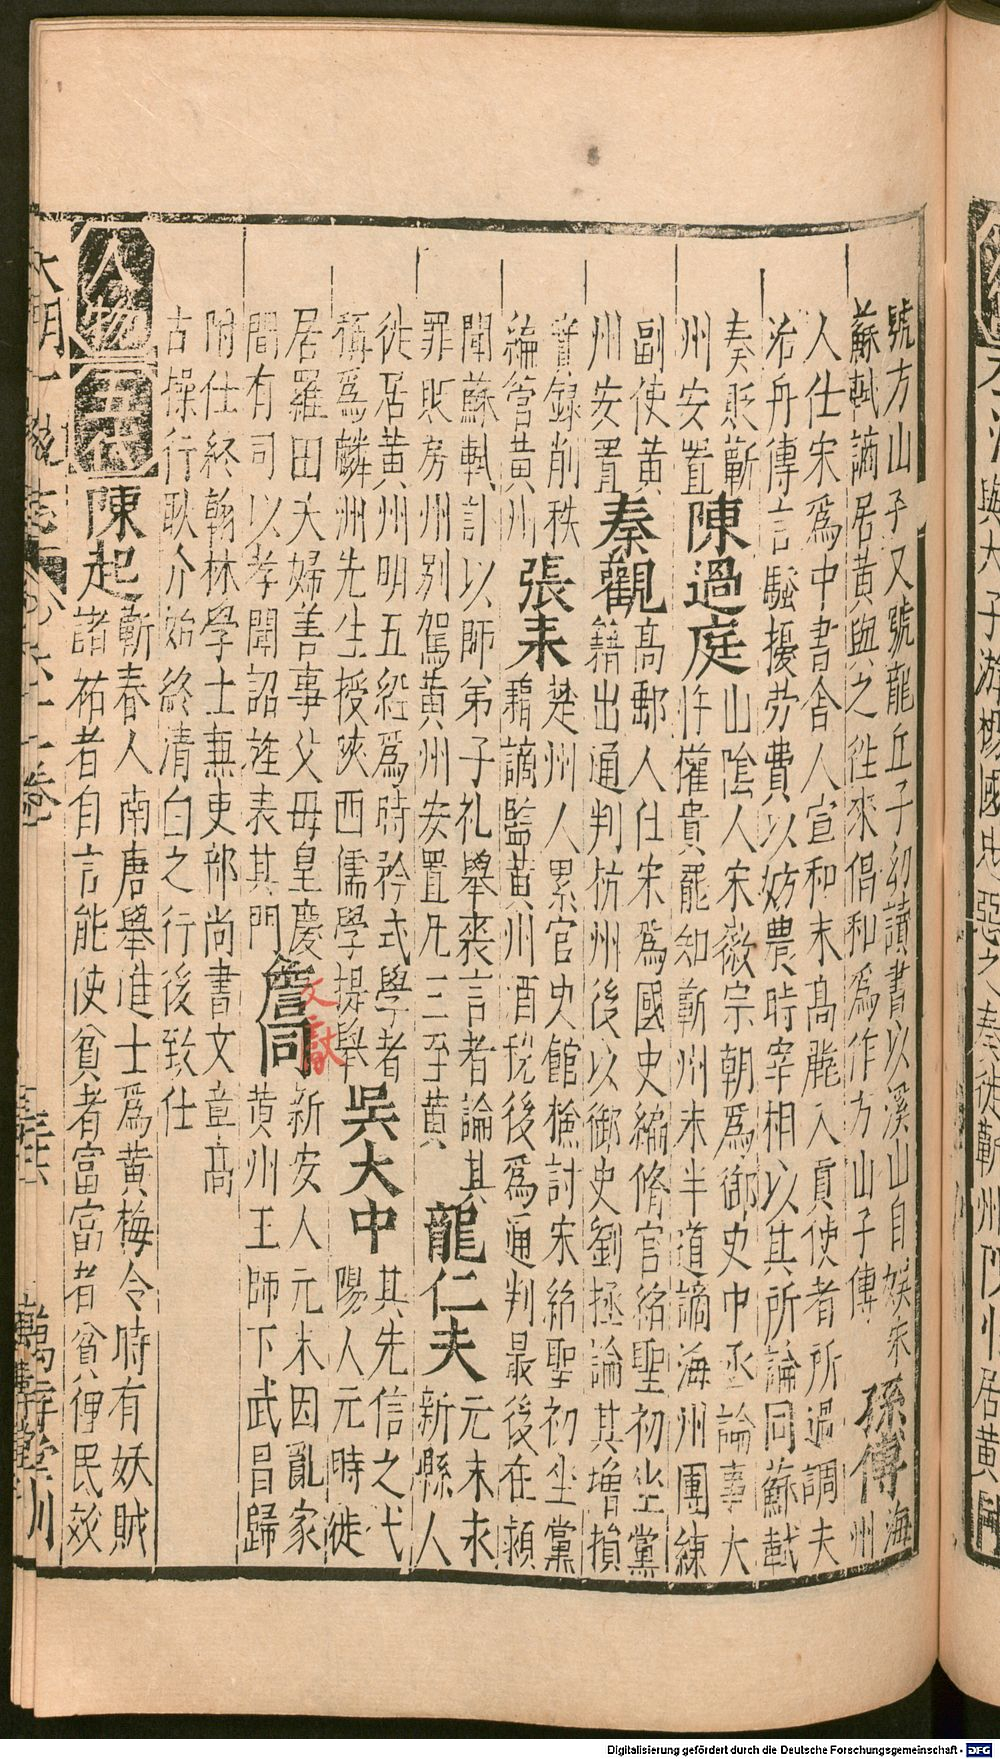 號方山子又號龍丘子幼讀書以溪山自娛宋
蘇軾謫居黃與之往來倡和為作方山子傳
孫傅
海
州
人仕宋為中書舍人宣和末高麗入貢使者所過調夫
治舟傳言騷擾勞費以妨農時宰相以其所論同蘇軾
奏貶蘄
州安置
陳過庭
山陰人宋徽宗朝為御史中丞論事大
忤權貴罷知蘄州未半道謫海州團練
副使黃
州安置
秦觀
高郵人仕宋為國史編脩官紹聖初坐黨
籍出通判杭州後以御史劉拯論其增損
實錄削秩
編管黃州
張耒
楚州人累官史館檢討宋紹聖初坐黨
籍謫監黃州酒稅後為通判最後在潁
聞蘇軾訃以師弟子礼舉哀言者論其
罪貶房州別駕黃州安置凡三至黃
龍仁夫
元末永
新縣人
徙居黃州明五經為時矜式學者
稱為麟洲先生授陝西儒學提舉
吳大中
其先信之弋
陽人元時徙
居羅田夫婦善事父母皇慶
間有司以孝聞詔旌表其門
詹同
文獻
新安人元末因亂家
黃州王師下武昌歸
附仕終翰林學士兼吏部尚書文章高
古操行耿介始終清白之行後致仕
人物
五代
陳起
蘄春人南唐舉進士為黃梅令時有妖賊
諸祐者自言能使貧者富富者貧俾民效
大明一統志
六十一卷
三十六
萬壽堂刊
Digitalisierung gefördert durch die Deutsche Forschungsgemeinschaft - DFG